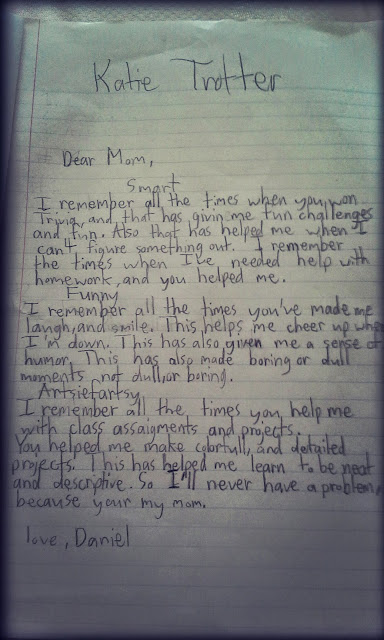 Katie Trotter
Dear Mom,
Smart
I remember all the times when you won
Trivia, and that has givin me fun challenges
and fun. Also that has helped me when I
can't figure something out. I remember
the times when I've needed help with
homework, and you helped me.
Funny
I remember all the times you've made me
laugh, and smile. This helps me cheer up when
I'm down. This has also given me a sense of
humor. This has also made boring or dull
moments not dull, or boring.
Artsiefartsy
I remember all the times you help me
with class assaigments and projects.
You helped me make colorfull, and detailed
projects. This has helped me learn to be neat
and descrptive. So I'll never have a problem,
because your my mom.
love, Daniel